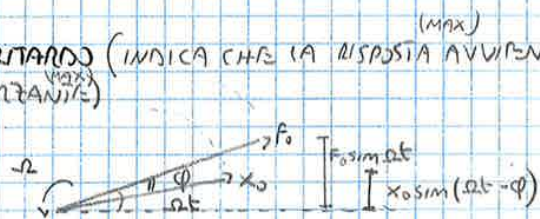 (MAX)
RITARDO (INDICA CHE LA RISPOSTA AVVIEN
(MAX)
RZANTE)
F₀
Ω
φ
x₀
Ωt
F₀ sin Ωt
x₀ sin (Ωt - φ)